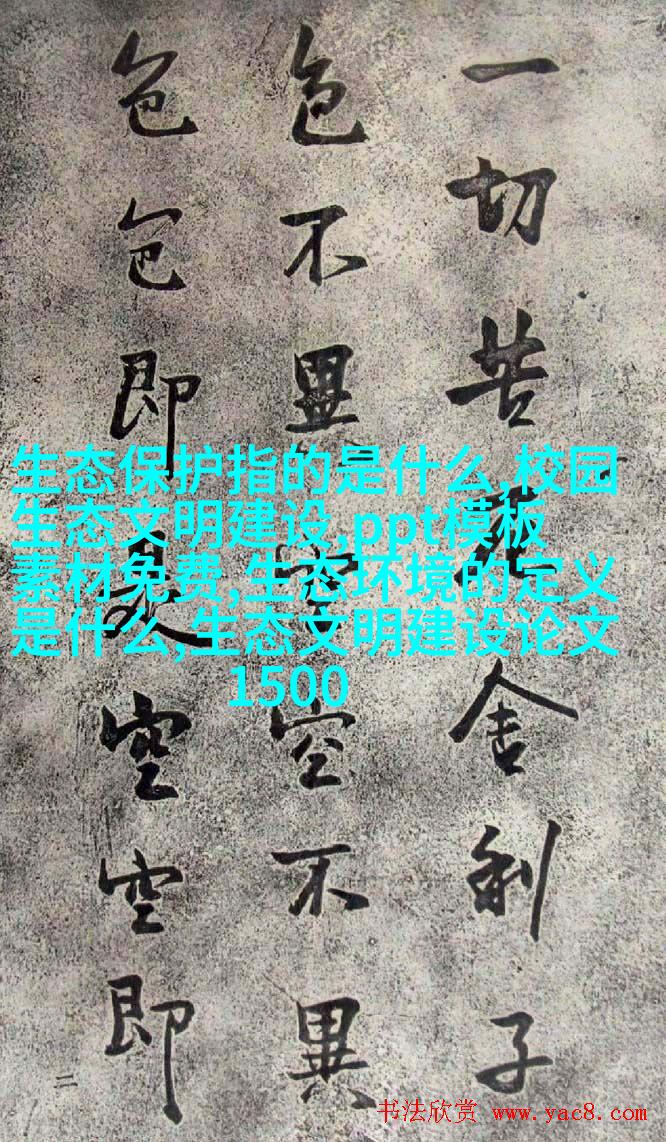 一切苦厄舍利子
色不異空空不異
色色即是空空即
二
生态保护指的是什么,校园
生态文明建设,ppt模板
素材免费,生态环境的定义
是什么,生态文明建设论文
1500
书法欣赏 www.yac8.com